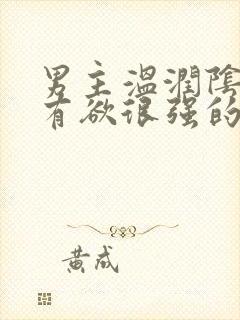 男主温潤陰
有欲很强的
黄成